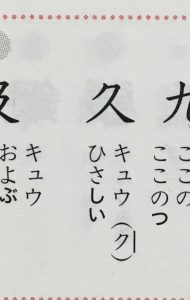 九
ここの
ここのつ
久
キュウ（ク）
ひさしい
及
キュウ
およぶ